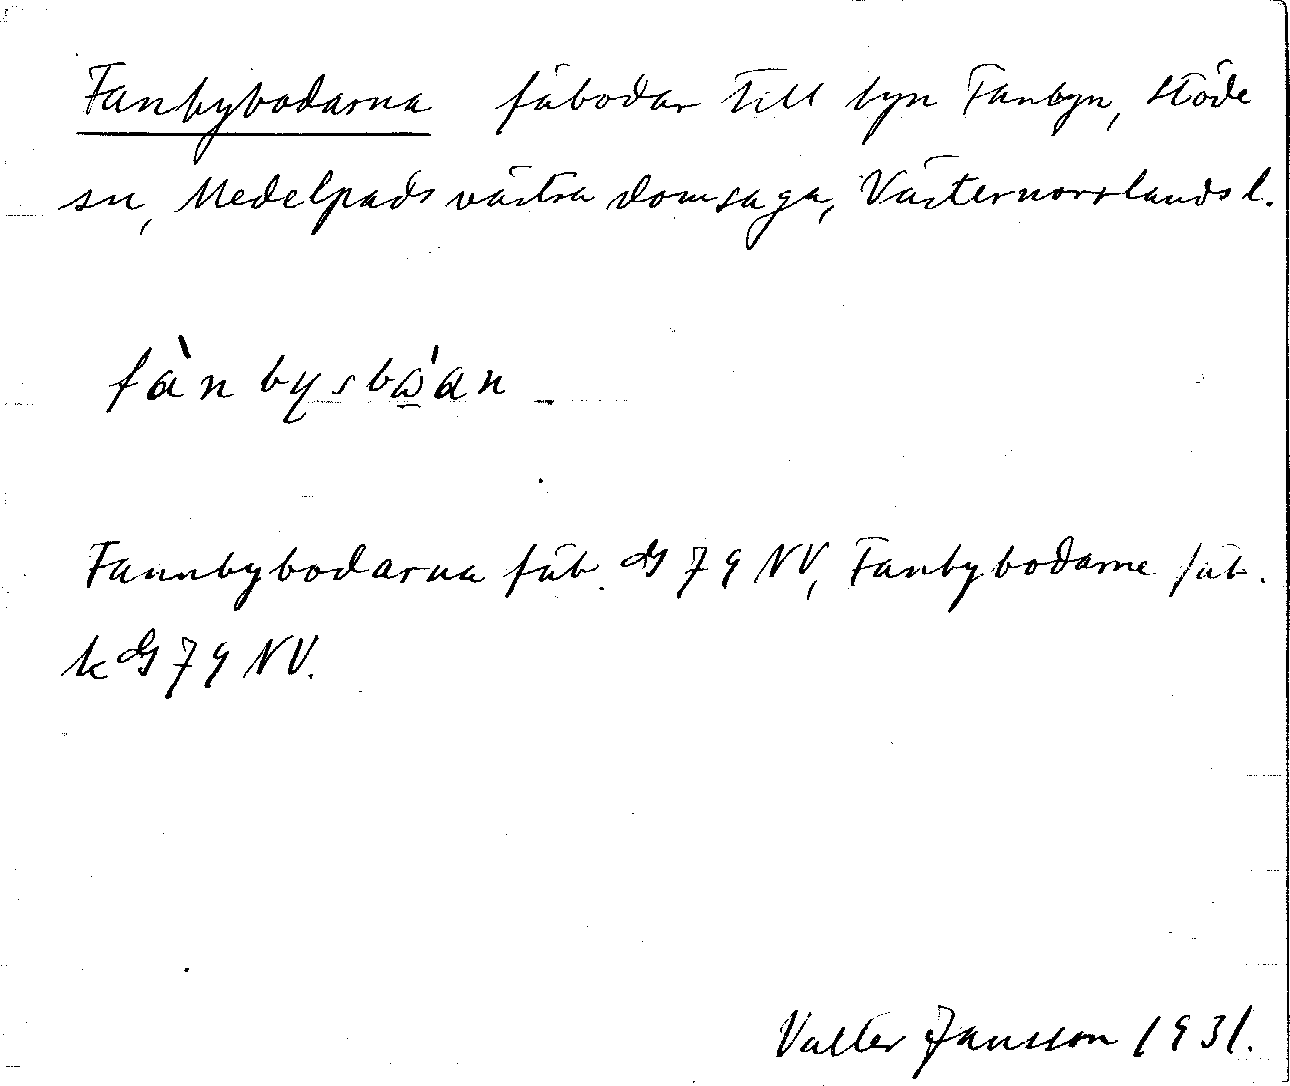 Fanbybodarna fäbodar till byn Fanbyn, Stöde
sn, Medelpads västra domsaga, Västernorrlands l.
fànbysbɷ́an
Fannbybodarna fäb. GS 79 NV, Fanbybodarne fäb.
k GS 79 NV.
Valter Jansson 1931.